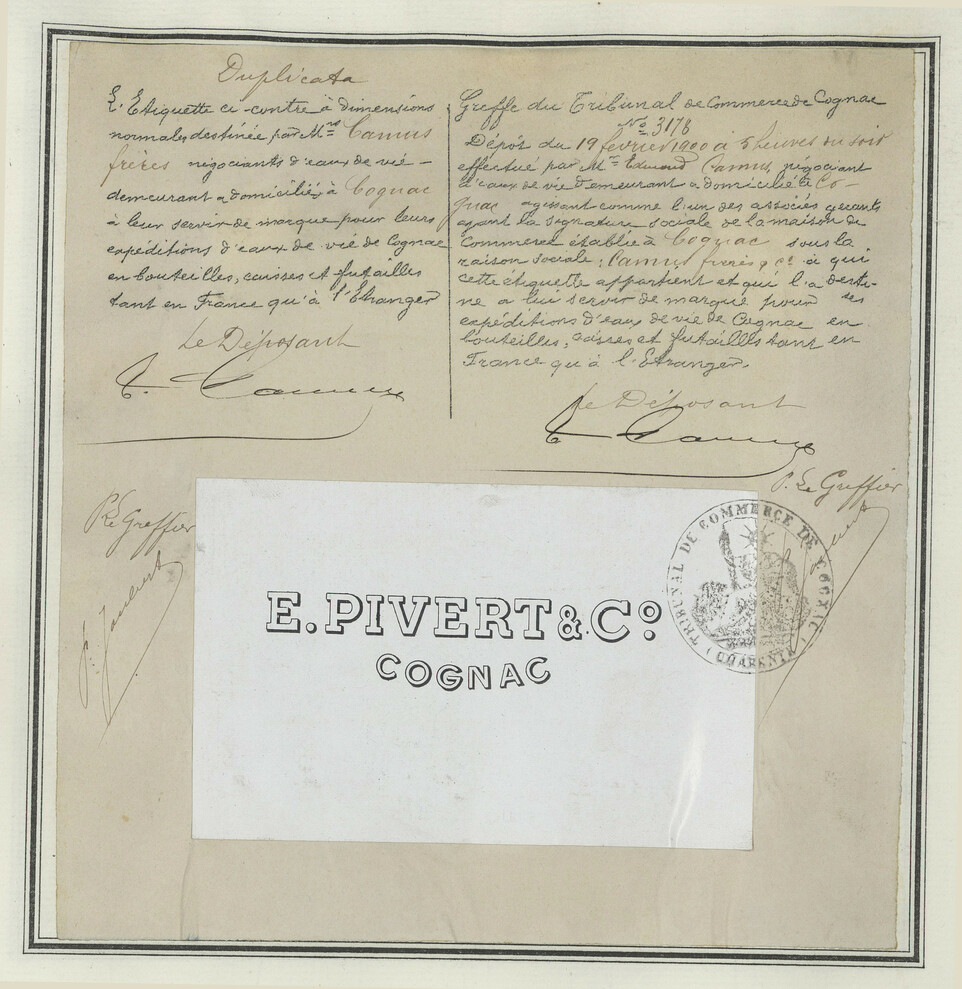 Duplicata
L'Etiquette ci-contre à dimensions
normales destinée par Mrs Camus
frères négociants d'eaux de vie -
demeurant & domiciliés à Cognac
à leur servir de marque pour leurs
expéditions d'eaux de vie de Cognac
en bouteilles, caisses et futailles
tant en France qu'à l'Etranger
Le Déposant
E. Camus
Greffe du Tribunal de Commerce de Cognac
No 3178
Dépôt du 19 février 1900 à 5 heures du soir
effectué par Mr Edmond Camus, négociant
d'eaux de vie demeurant & domicilié à Co-
gnac agissant comme l'un des associés gérants
ayant la signature sociale de la maison de
Commerce établie à Cognac sous la
raison sociale: Camus frères & Co à qui
cette étiquette appartient et qui l'a desti-
né a lui servir de marque pour ses
expéditions d'eaux de vie de Cognac en
bouteilles, caisses et futailles tant en
France qu'à l'Etranger.
Le Déposant
E. Camus
P. Le Greffier
P. Le Greffier
E. PIVERT & Co
COGNAC
TRIBUNAL DE COMMERCE DE COGNAC
(CHARENTE)